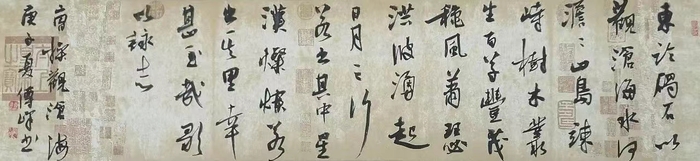 東临碣石以
觀滄海水何
澹〻山島竦
峙樹木叢
生百草豐茂
秋風蕭瑟
洪波湧起
日月之行
若出其中星
漢燦爛若
出其里幸
甚至哉歌
以詠志
曹操觀滄海
庚子夏傅峰书